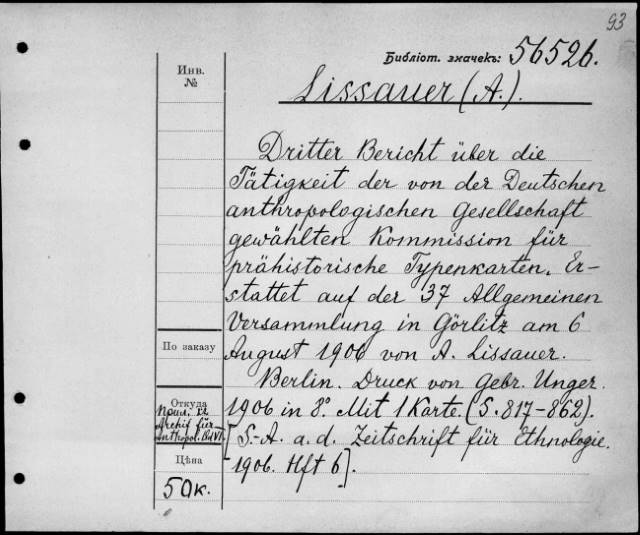 93
Библіот. значекъ: 56526.
Инв.
№
Lissauer (A.).
Dritter Bericht über die
Tätigkeit der von der Deutschen
anthropologischen Gesellschaft
gewählten Kommission für
prähistorische Typenkarten. Er-
stattet auf der 37 Allgemeinen
Versammlung in Görlitz am 6
August 1906 von A. Lissauer.
Berlin. Druck von Gebr. Unger.
1906 in 8°. Mit 1 Karte. (S. 817-862).
[S.-A. a. d. Zeitschrift für Ethnologie.
1906. Hft 6].
По заказу
Откуда
Archif für
Anthropol. Bd VI.
Цѣна
50к.